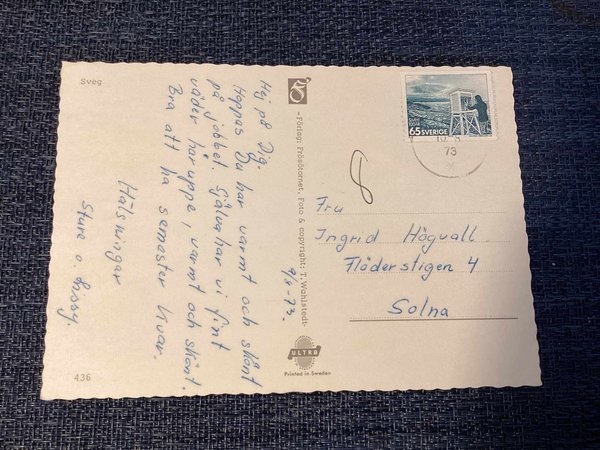 Sveg
Hej på Dig.
Hoppas Du har varmt och skönt
på jobbet. Själva har vi fint
väder häruppe, varmt och skönt.
Bra att ha semester kvar.
Hälsningar
Sture o. Sissy.
9/8-73.
436
-Förlag: Frösötornet. Foto & copyright: T. Wahlstedt-
ULTRA
Printed in Sweden
65 SVERIGE
73
Fru
Ingrid Högvall
Fläderstigen 4
Solna